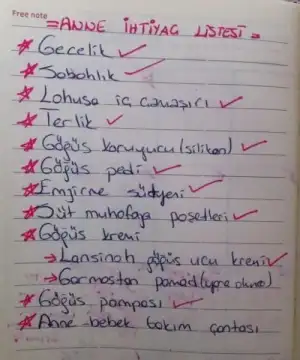 Free note
= ANNE İHTİYAÇ LİSTESİ =
Gecelik
Sabahlık
Lohusa iç çamaşırı
Terlik
Göğüs koruyucu (silikon)
Göğüs pedi
Emzirme sütyeni
Süt muhafaza poşetleri
Göğüs kremi
→ Lansinoh göğüs ucu kremi
→ Garmastan pomad (yara olursa)
Göğüs pompası
Anne bebek bakım çantası